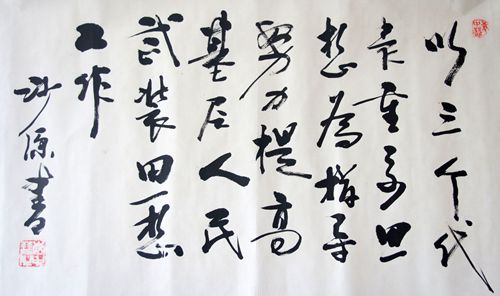 以三个代
表重要思
想為指导
努力提高
基层人民
武装思想
工作
沙源书